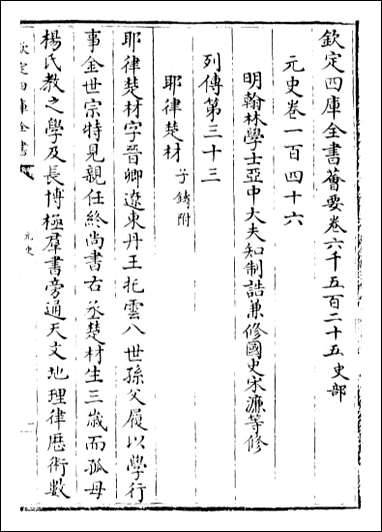 欽定四庫全書薈要卷六千五百二十五史部
元史卷一百四十六
明翰林學士亞中大夫知制誥兼修國史宋濂等修
列傳第三十三
耶律楚材 子鑄附
耶律楚材字晉卿遼東丹王托雲八世孫父履以學行
事金世宗特見親任終尚書右丞楚材生三歲而孤母
楊氏教之學及長博極羣書旁通天文地理律歴術數
欽定四庫全書
元史
一